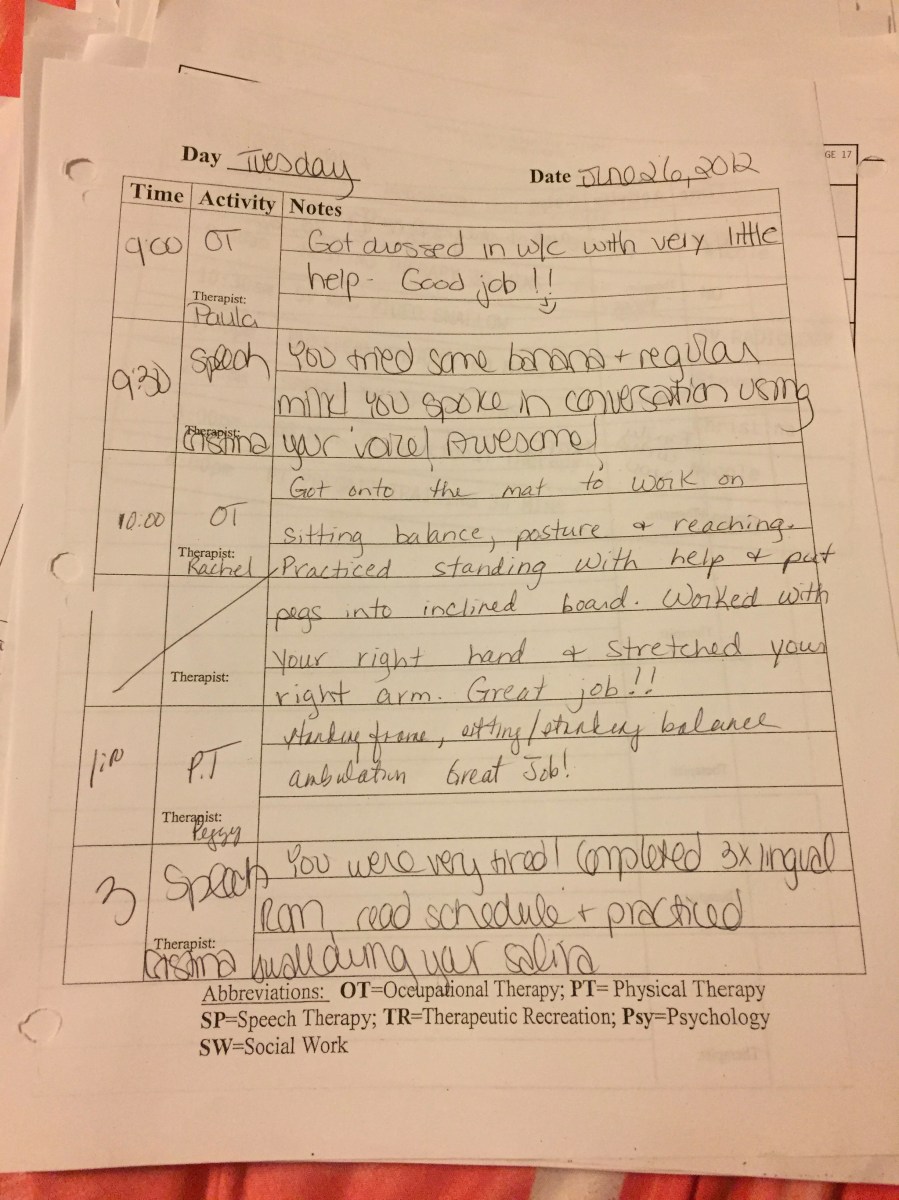 GE 17
Day Tuesday Date June 26, 2012
Time Activity Notes
9:00 OT Got dressed in w/c with very little
help - Good job !!
Therapist:
Paula
9:30 Speech You tried some banana + regular
milk! You spoke in conversation using
Therapist: Cristina your voice! Awesome!
Got onto the mat to work on
10:00 OT sitting balance, posture & reaching.
Therapist:
Rachel Practiced standing with help & put
pegs into inclined board. Worked with
Therapist: your right hand & stretched your
right arm. Great job!!
standing frame, sitting/standing balance
P.T ambulation Great Job!
Therapist:
Peggy
3 Speech You were very tired! Completed 3x lingual
ROM, read schedule + practiced
Therapist:
Cristina swallowing your saliva
Abbreviations: OT=Occupational Therapy; PT= Physical Therapy
SP=Speech Therapy; TR=Therapeutic Recreation; Psy=Psychology
SW=Social Work